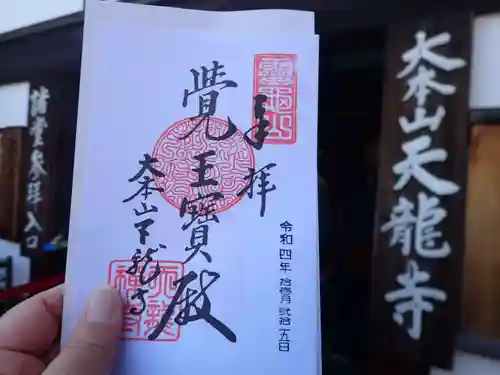 奉拝
靈亀山
令和四年 拾壱月 弐拾五日
覺王寶殿
大本山天龍寺
大本山天龍寺
諸堂参拝入口